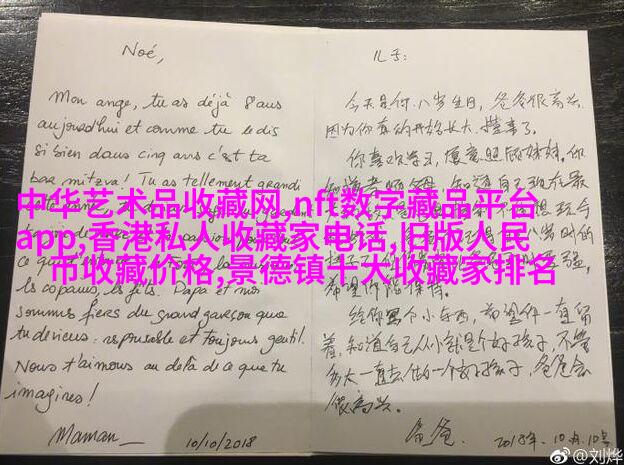 Noé,
Mon ange, tu as déjà 8 ans
aujourd'hui et comme tu le dis
si bien dans cinq ans c'est ta
bar mitzva! Tu as tellement grandi
les copains, les jets. Papa et moi
sommes fiers du grand garçon que
tu deviens: responsable et toujours gentil.
Nous t'aimons au delà de ce que tu
imagines!
Maman_
10/10/2018
儿子:
今天是你八岁生日,爸爸很高兴
因为你真的开始长大,懂事了。
你喜欢学习,愿意照顾妹妹。你
希望你能保持。
给你写个小东西,希望你一直留
着,知道自己从小就是个好孩子,不管
多大一直去做一个好孩子,爸爸会
很高兴。
爸爸.
2018年.10月.10号
中华艺术品收藏网,nft数字藏品平台
app,香港私人收藏家电话,旧版人民
币收藏价格,景德镇十大收藏家排名
@刘烨